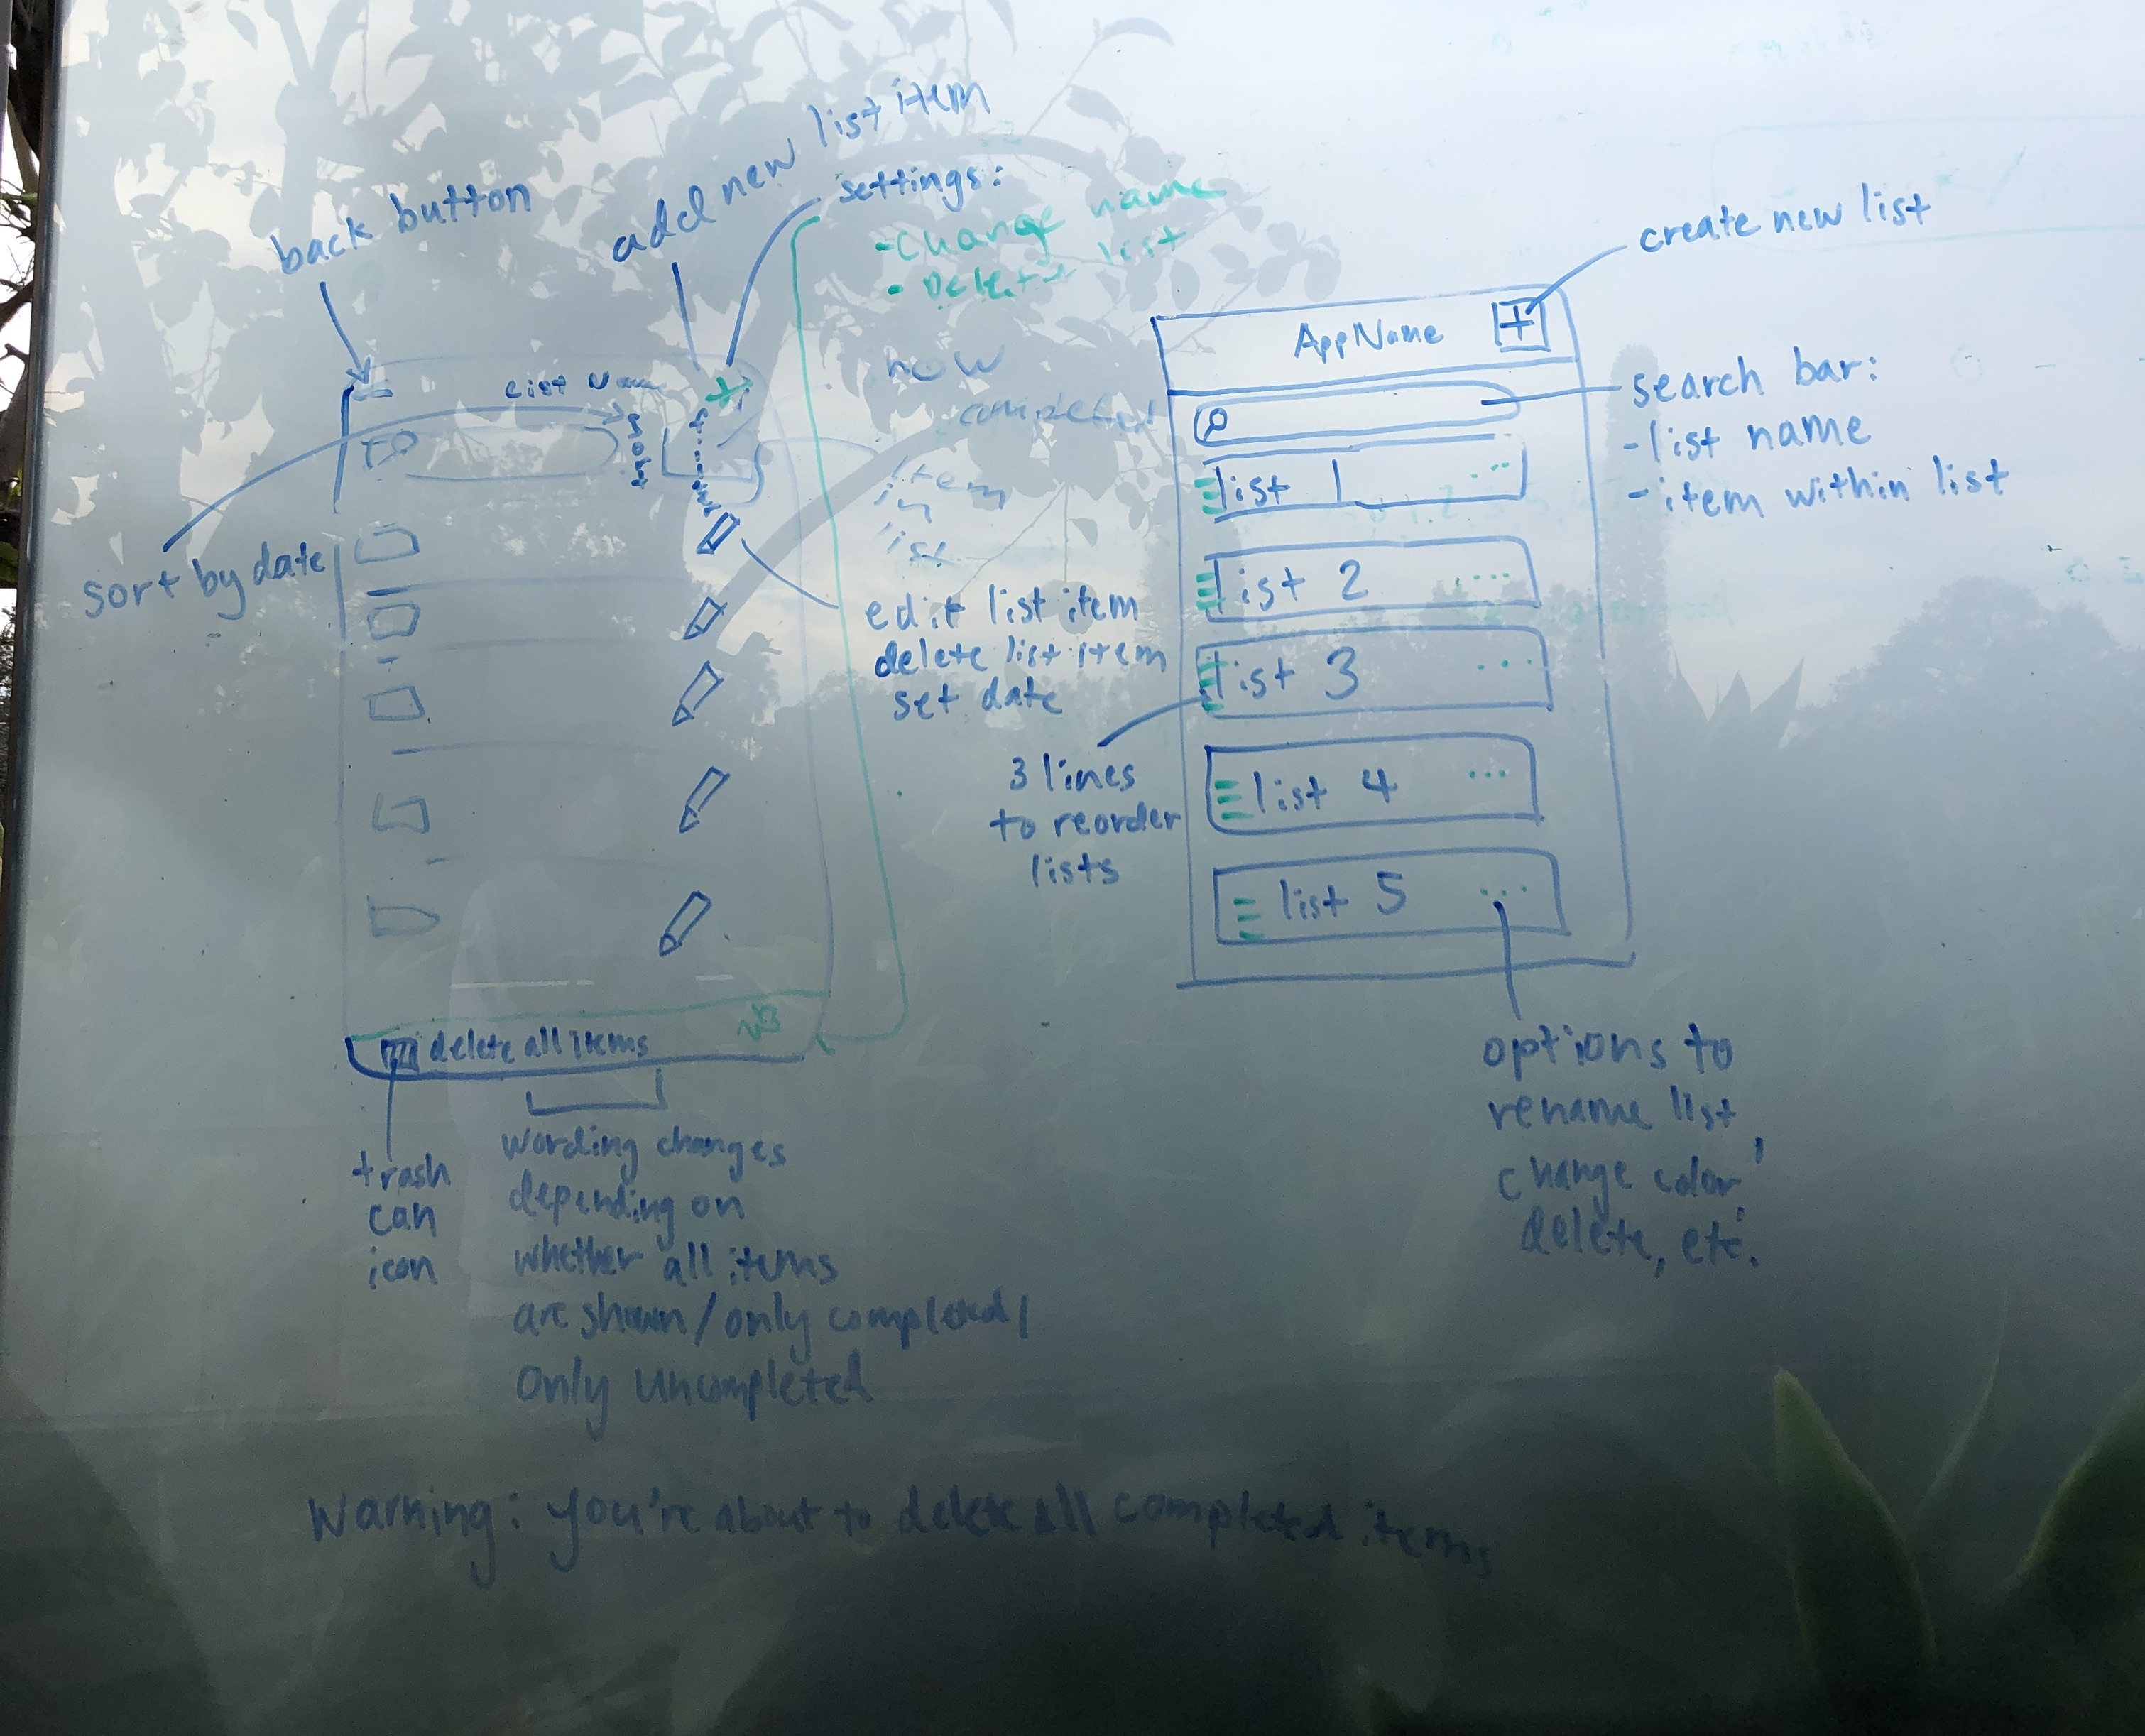 back button
add new list item
settings:
-Change name
- Delete list
how
completed
item
in
list
List
sort
sort by date
edit list item
delete list item
set date
delete all items
trash
can
icon
wording changes
depending on
whether all items
are shown/only completed/
only uncompleted
create new list
AppName
search bar:
-list name
-item within list
list 1
list 2
list 3
list 4
list 5
3 lines
to reorder
lists
options to
rename list,
change color,
delete, etc.
Warning: you're about to delete all completed items